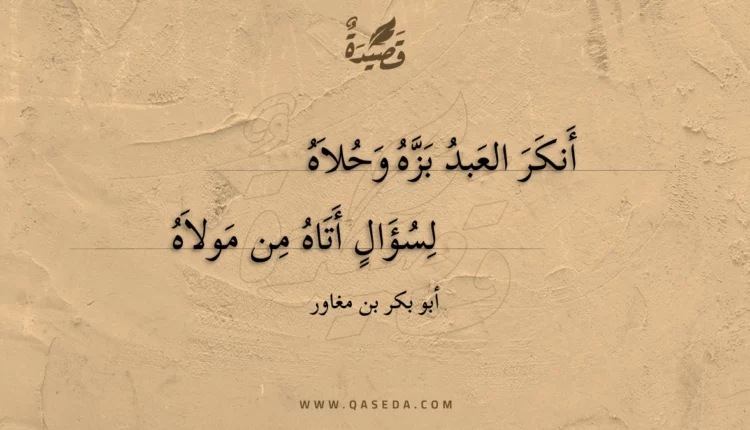 قَصِيْدَةٌ
أَنكَرَ العَبدُ بَزَّهُ وَحُلاَهُ
لِسُؤَالٍ أَتَاهُ مِن مَولاَهُ
أبو بكر بن مغاور
WWW.QASEDA.COM